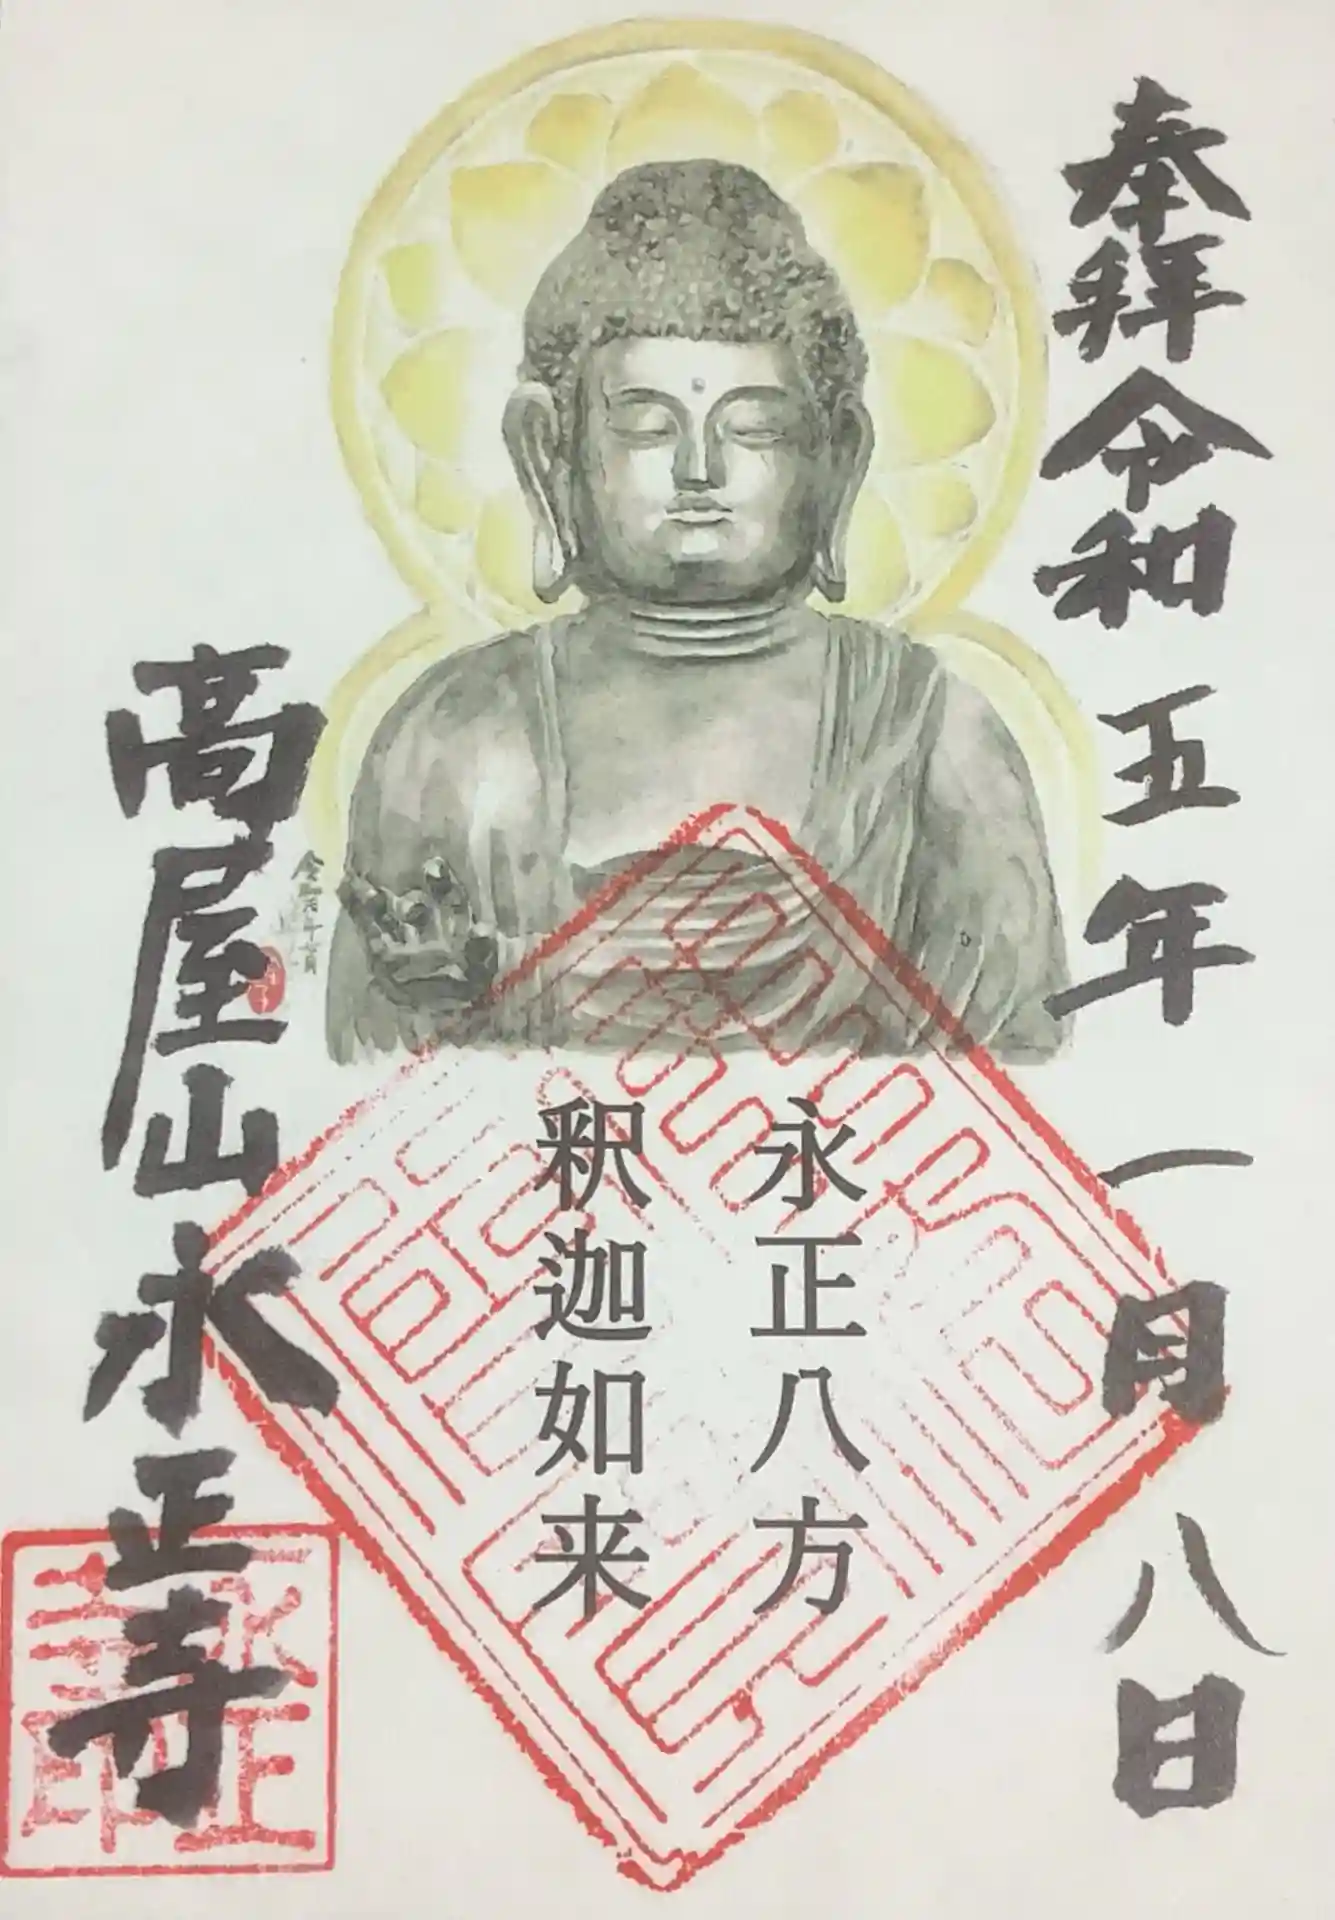 奉拝 令和 五年 一月 八日
永正八方
釈迦如来
高屋山 永正寺
永正寺印